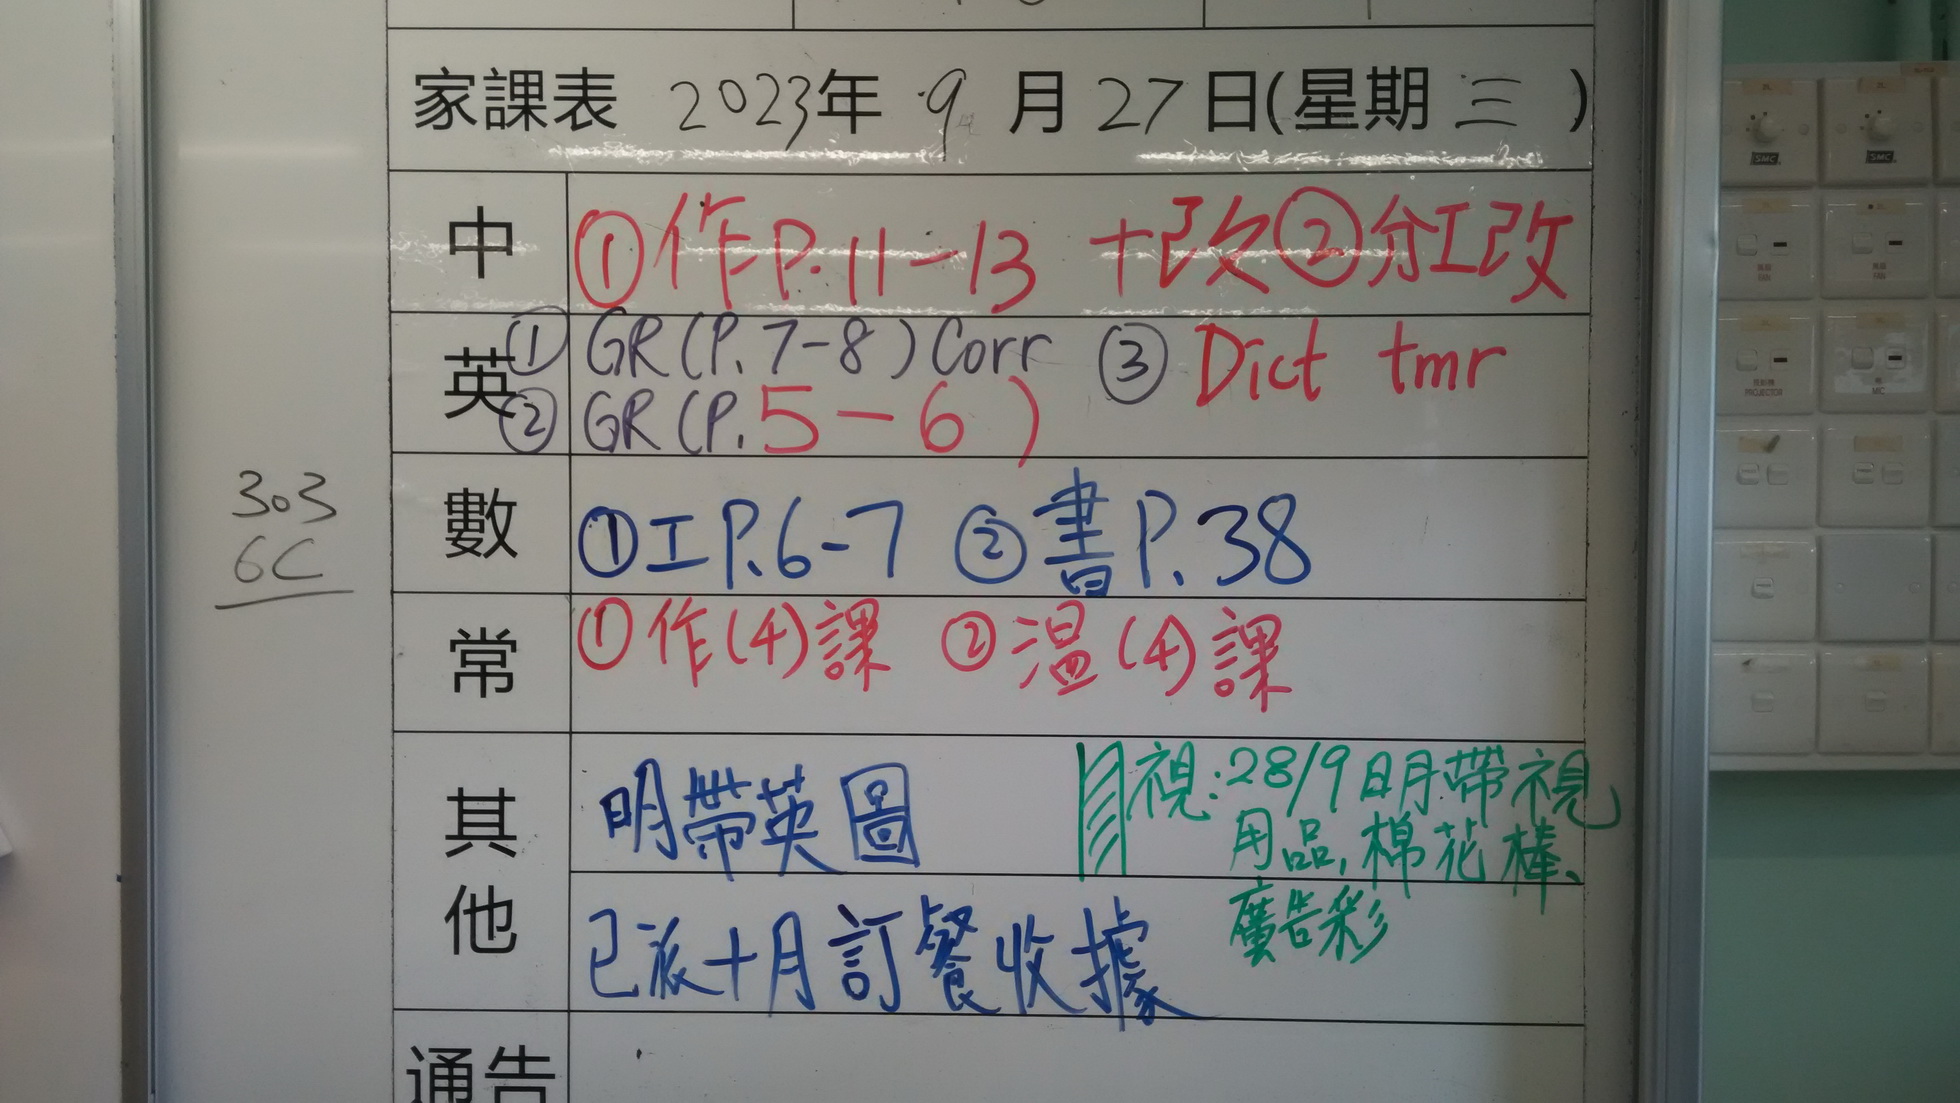 家課表 2023年 9 月 27 日(星期 三 )
中 ①作P.11-13 +改②分工改
英 ① GR(P.7-8)Corr ③ Dict tmr
② GR(P.5-6)
數 ①工P.6-7 ②書P.38
303
6C
常 ①作(4)課 ②温(4)課
其他
明帶英圖
視:28/9日月帶視
用品,棉花棒、
廣告彩
已派十月訂餐收據
通告
SMC
SMC
FAN
FAN
PROJECTOR
MIC